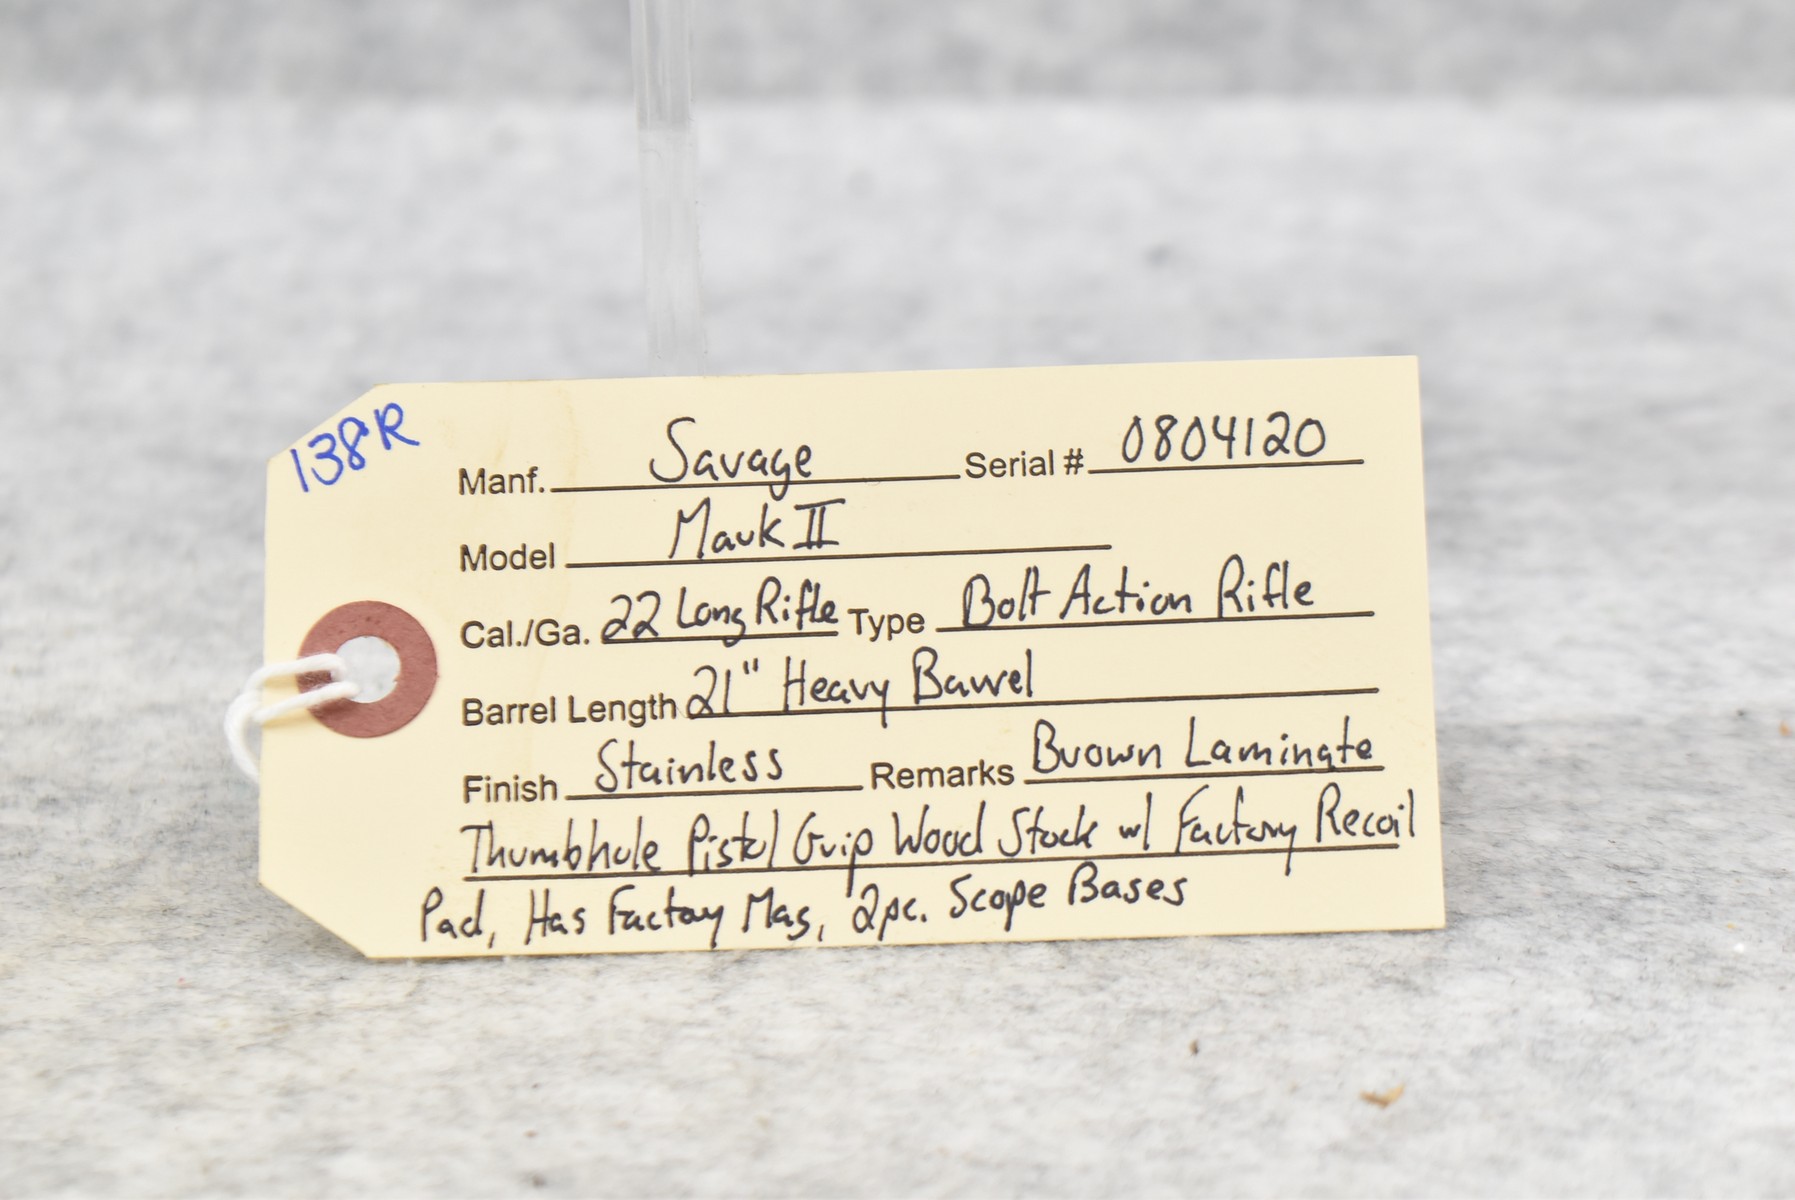 138R
Manf. Savage Serial # 0804120
Model Mark II
Cal./Ga. 22 Long Rifle Type Bolt Action Rifle
Barrel Length 21" Heavy Barrel
Finish Stainless Remarks Brown Laminate
Thumbhole Pistol Grip Wood Stock w/ Factory Recoil
Pad, Has Factory Mag, 2pc. Scope Bases